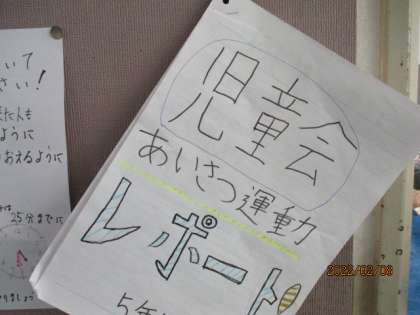 いて
さい!
ように
おえるように
25分までに
児童会
あいさつ運動
レポート
5年
2022/02/08